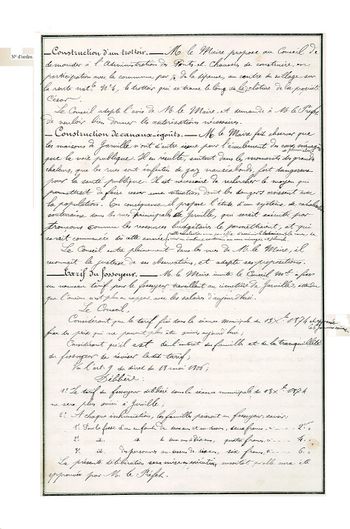 Nos d'ordre.
Construction d'un trottoir. — M. le Maire propose au Conseil de
demander à l'Administration des Ponts et Chaussées de construire, en
participation avec la commune, par ½ de la dépense, au centre du village sur
la route nat. N° 4, le trottoir qui se trouve le long de la clôture de la propriété
César
Le Conseil adopte l'avis de M. le Maire, et demande à M. le Préfet
de vouloir bien donner les autorisations nécessaires.
Construction de canaux-égouts. — M. le Maire fait observer que
les maisons de Joinville n'ont d'autre issue pour l'écoulement de
que la voie publique. Il en résulte, surtout dans les moments des grandes
chaleurs, que les rues sont infectées de gaz nauséabonds, fort dangereux
pour la santé publique. Il est nécessaire de rechercher le moyen qui
permettrait de faire cesser une situation dont les dangers croissent avec
la population. En conséquence il propose l'étude d'un système de canalisation
souterraine sous les rues principales de Joinville, qui serait exécuté par
tronçons comme les ressources budgétaires le permettraient, et qui
serait commencée de suite
Le Conseil entre pleinement dans les vues de M. le Maire, il
reconnaît la justesse de ses observations, et adopte ses propositions.
Tarif du fossoyeur. — M. le Maire invite le Conseil Mal à fixer
un nouveau tarif pour le fossoyeur travaillant au cimetière de Joinville, attendu
que l'ancien n'est plus en rapport avec les salaires d'aujourd'hui.
Le Conseil,
Considérant que le tarif fixé dans la séance municipale du 13 Xbre 1874
fixe des prix qui ne peuvent plus être suivis aujourd'hui;
Considérant qu'il est de l'intérêt des familles et de la tranquillité
du fossoyeur de réviser le dit tarif;
Vu l'art. 9 du décret du 18 mai 1806,
Délibère
1° Le tarif du fossoyeur délibéré dans la séance municipale du 13 Xbre 1874
ne sera plus suivi à Joinville.
2° A chaque inhumation, les familles paieront au fossoyeur, savoir:
1° Pour la fosse d'un enfant de un an et au dessous, deux francs 2f.
2° d. d. quatre francs 4.
d. des personnes au dessus de six ans, six francs 6.
La présente délibération sera mise à exécution aussitôt qu'elle aura été
approuvée par M. le Préfet.